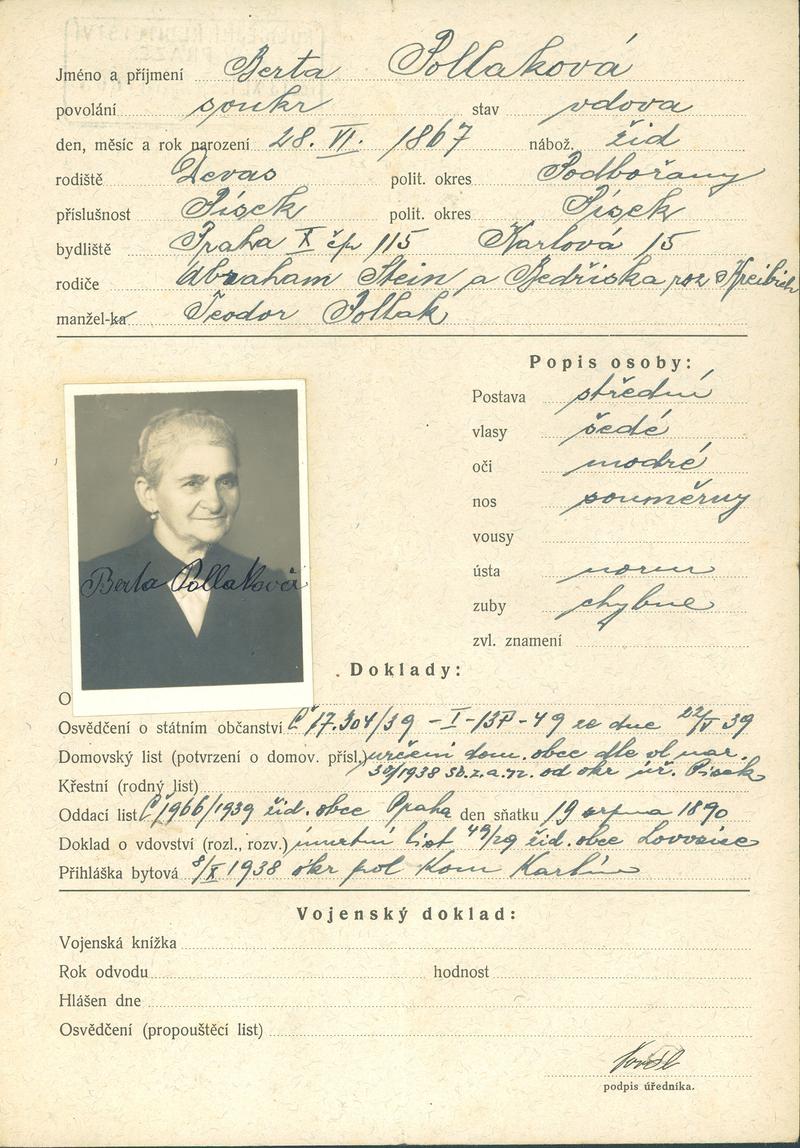 Jméno a příjmení Berta Pollaková
povolání soukr stav vdova
den, měsíc a rok narození 28. VI. 1867 nábož. žid
rodiště Devas polit. okres Podbořany
příslušnost Písek polit. okres Písek
bydliště Praha X čp 115 Karlová 15
rodiče Abraham Stein a Bedřiska roz Kreibich
manžel-ka Teodor Pollak
Popis osoby:
Postava střední
vlasy šedé
oči modré
nos souměrny
vousy
ústa norm
zuby chybne
zvl. znamení
Berta Pollaková
Doklady:
O
Osvědčení o státním občanství Č 17.304/39 -I-13P-49 ze dne 22/V 39
Domovský list (potvrzení o domov. přísl.) určení dom. obce dle vl. nar.
Křestní (rodný list) 38/1938 sb.z.a.n. od okr úř. Písek
Oddací list Č 1966/1939 žid. obce Praha den sňatku 19 srpna 1890
Doklad o vdovství (rozl., rozv.) úmrtní list 49/29 žid. obce Lovosice
Přihláška bytová 8/X 1938 okr pol Kom Karlín
Vojenský doklad:
Vojenská knížka
Rok odvodu hodnost
Hlášen dne
Osvědčení (propouštěcí list)
podpis úředníka.